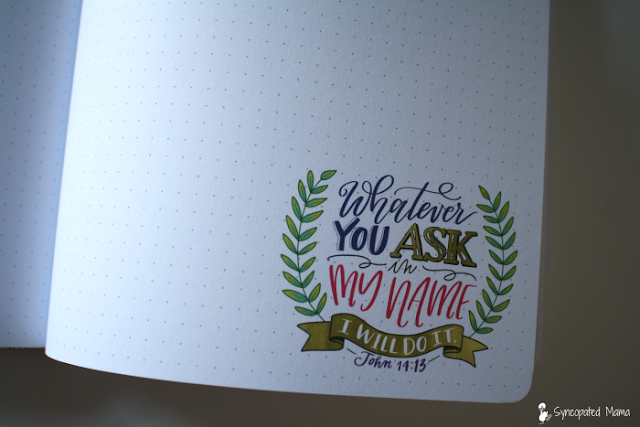 Whatever
YOU ASK
in
MY NAME
I WILL DO IT.
John 14:13
Syncopated Mama